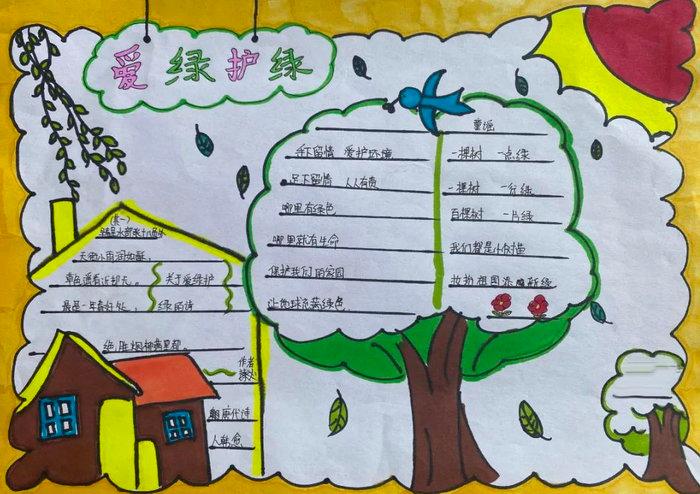 爱绿护绿
(其一)
早春呈水部张十八员外
天街小雨润如酥，
草色遥看近却无。
关于爱绿护
绿的诗
最是一年春好处，
绝胜烟柳满皇都。
作者
朝唐代诗
人韩愈
手下留情 爱护环境
足下留情 人人有责
哪里有绿色
哪里就有生命
保护我们的家园
让地球充满绿色
童谣
一棵树 一点绿
一棵树 一分绿
百棵树 一片绿
我们都是小树苗
妆扮祖国添新绿